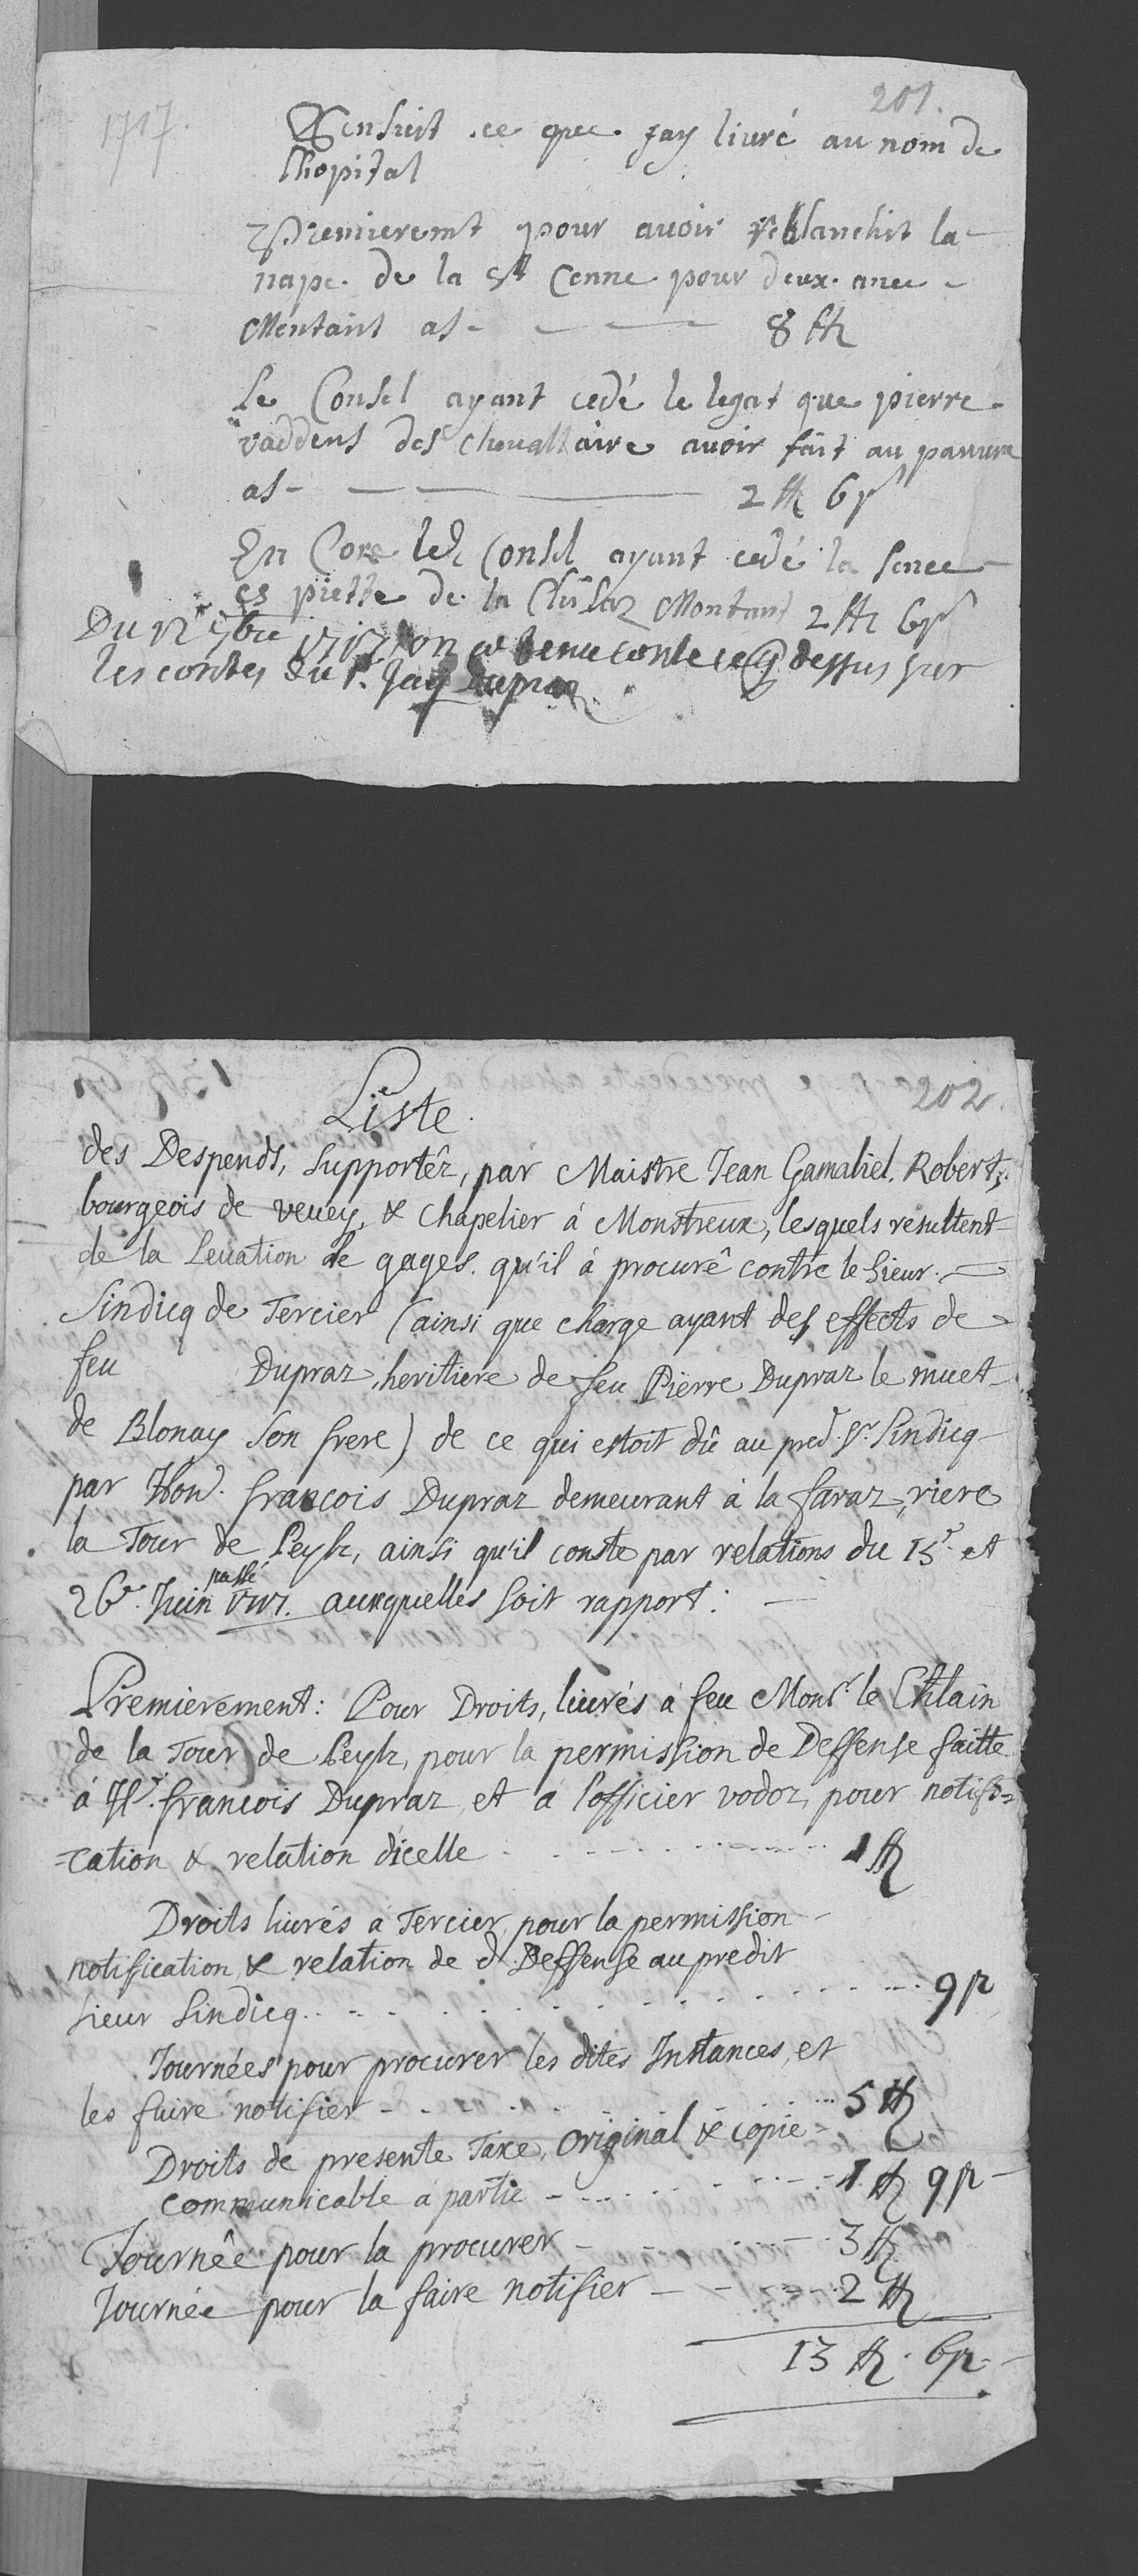 201.
1717.
Sensuit ce que jay livré au nom de
lhopital
Premieremt pour avoir reblanchit la
nape de la Ste Cenne pour deux anee
Montant as - 8 ff
Le Consel ayant cedé le legat que pierre
vaddens des chevallaire avoir fait au pauvre
as - 2 ff 6 s
En Core led Consel ayant cedé la sence
es piette de la Chisaz Montant 2 ff 6 s
Du 12e 7bre 1717 on a tenu conte ce q dessus sur
les contes du Sr. Jaq Dupraz
202
Liste.
des Despends, Supportêz, par Maistre Jean Gamaliel. Robert,
bourgeois de vevey, & chapelier à Monstreux, lesquels resultent
de la Levation de gages. qu'il à procurê contre le Sieur.
Sindicq de Tercier (ainsi que charge ayant des effects de
feu Dupraz, heritiere de feu Pierre Dupraz le muet
de Blonay Son frere) de ce qui estoit dû au pred. Sr. Sindicq
par Hon. francois Dupraz demeurant à la faraz, riere
la Tour de Peylz, ainsi qu'il conste par relations du 15e. et
26e. Juin passé 1717. auxquelles soit rapport:
Premierement: Pour Droits, livrés à feu Monsr. le Chlain
de la Tour de Peylz, pour la permission de Deffense faitte
à Hr. francois Dupraz, et à l'officier vodoz, pour notifi=
=cation & relation d'icelle 1 ff
Droits livrés à Tercier, pour la permission
notification, & relation de d. Deffense au predit
Sieur Sindicq. 9 p
Journées pour procurer les dites Instances, et
les faire notifier 5 ff
Droits de presente Taxe, Original & copie
communicable à partie 1 ff 9 p
Journêe pour la procurer 3 ff
Journée pour la faire notifier 2 ff
13 ff. 6 p.